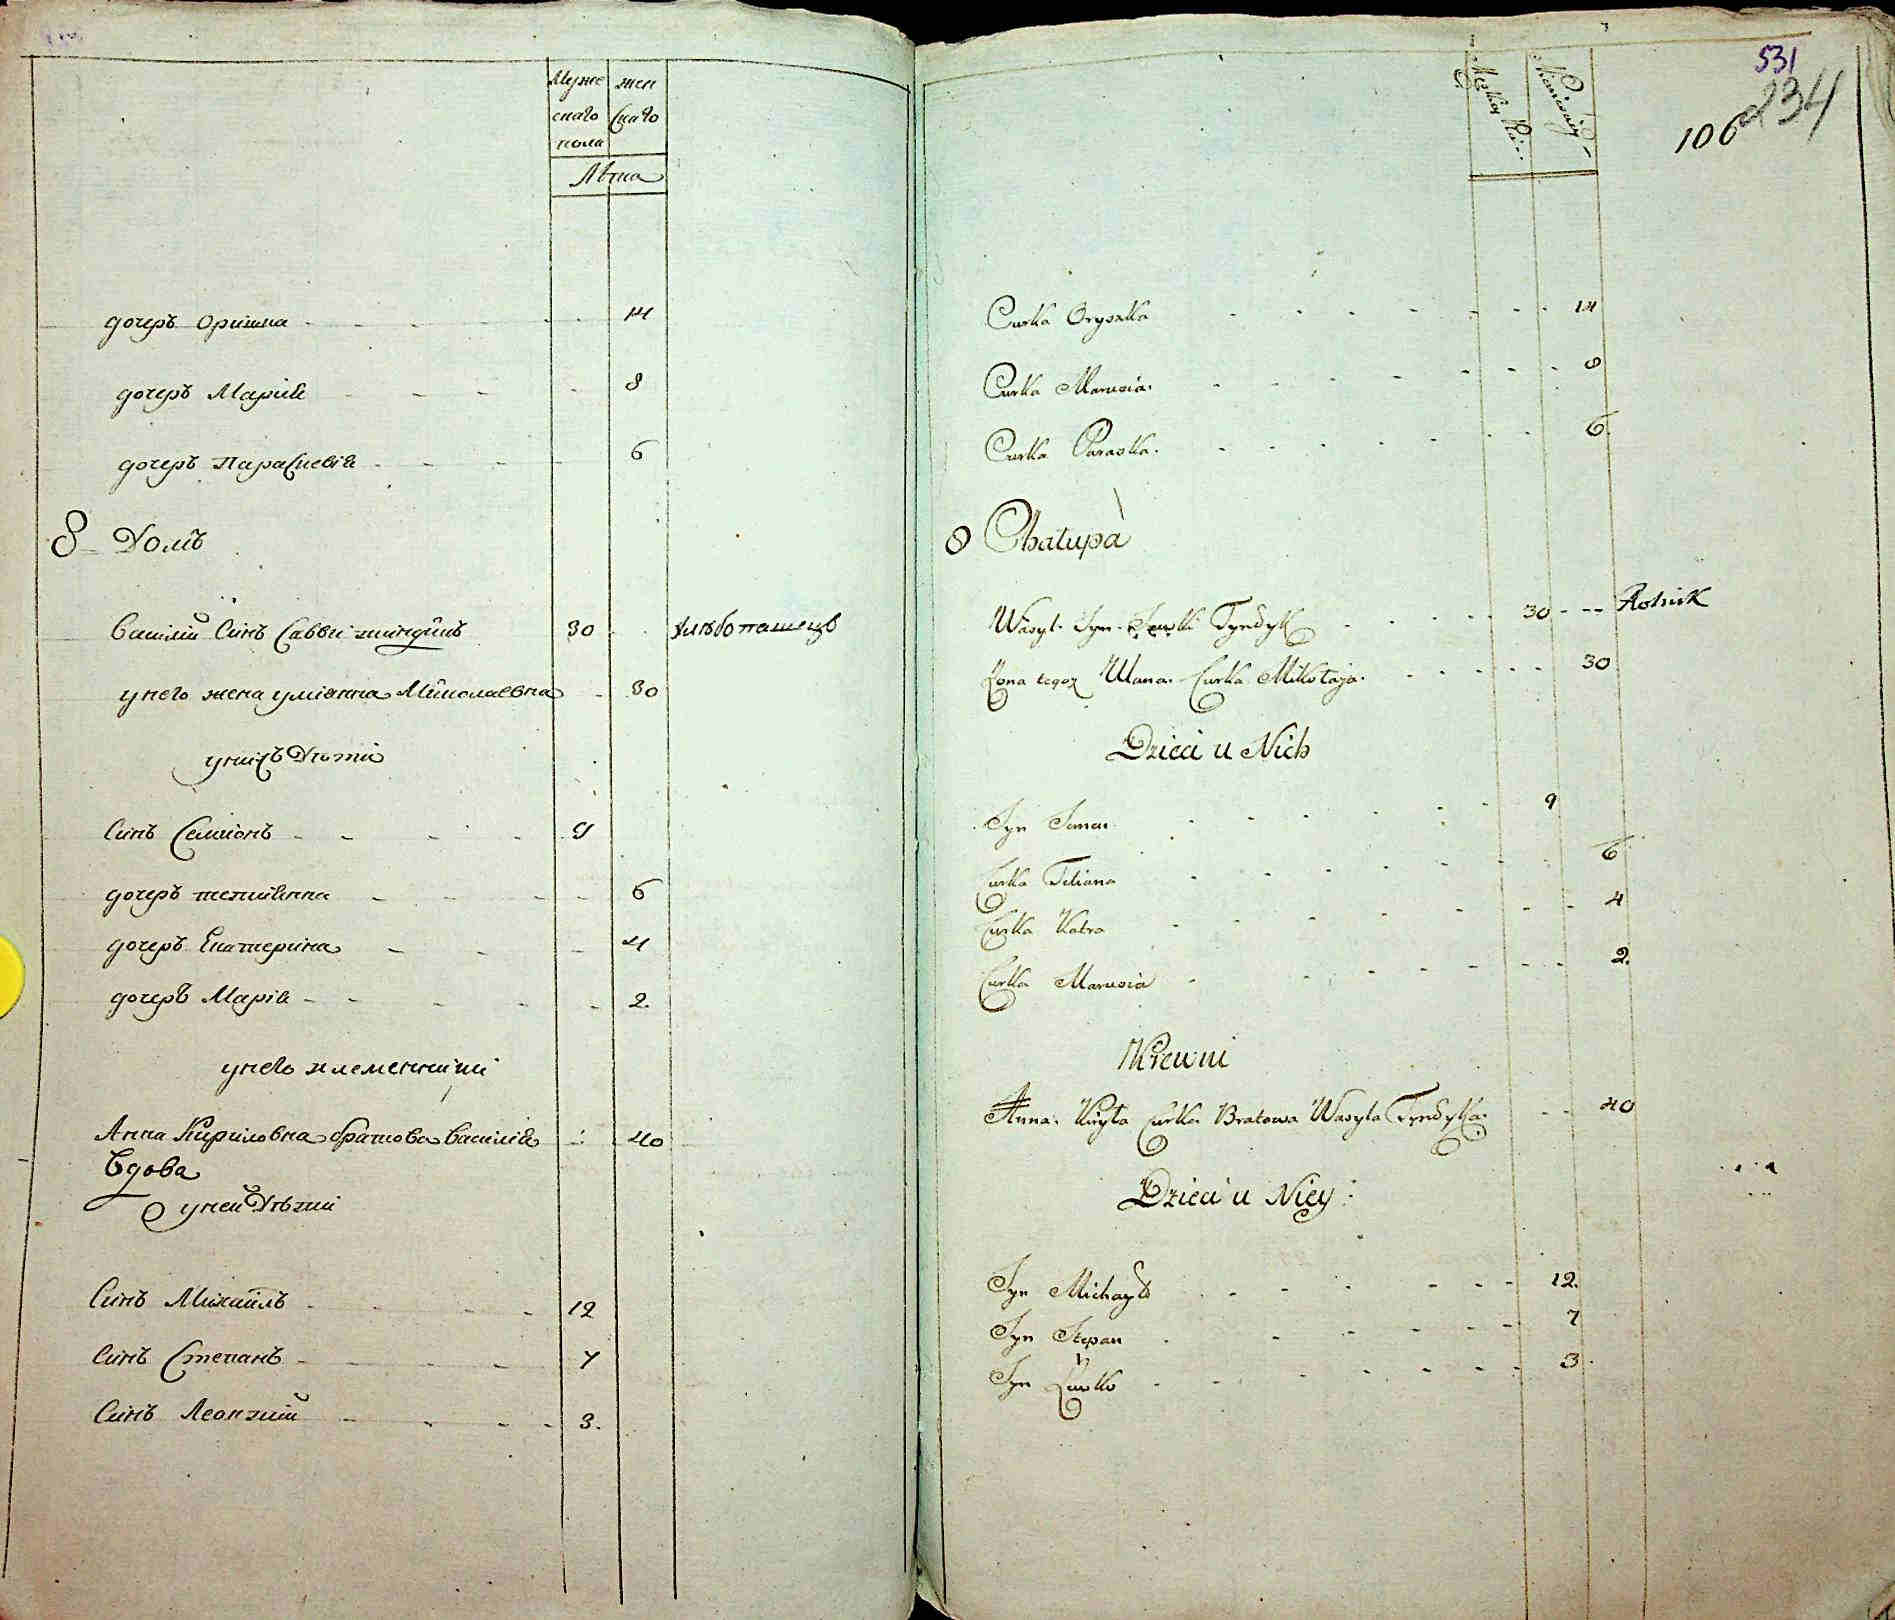 Муже
жен
скаго
скаго
пола
Лѣта
дочеръ Оришка 14
дочеръ Марія 8
дочеръ Параскевія 6
8 Домъ
Василій Синъ Саввы тындикъ 30 Хлѣбопашецъ
у него жена уліянна Миколаевна 30
у нихъ Дѣти
Синъ Семионъ 9
дочеръ тетиянна 6
дочеръ Екатерина 4
дочеръ Марія 2.
у него племенники
Анна Кириловна братова Василія 40
Вдова
у ней Дѣти
Синъ Михаилъ 12
Синъ Степанъ 7
Синъ Леонтий 3.
531
106 234
Curka Oryszka 14
Curka Marusia. 8
Curka Paraska. 6
8 Chałupa
Wasyl. Syn. Sawki Tyndyk 30 Rolnik
Żona tegoż Ulana. Curka Mikołaja. 30
Dzieci u Nich
Syn Semen 9
Curka Tetiana 6
Curka Katra 4
Curka Marusia 2.
Krewni
Anna. Kiryła Curka Bratowa Wasyla Tyndyka. 40
Dzieci u Niey
Syn Michayło 12.
Syn Stepan 7
Syn 3.